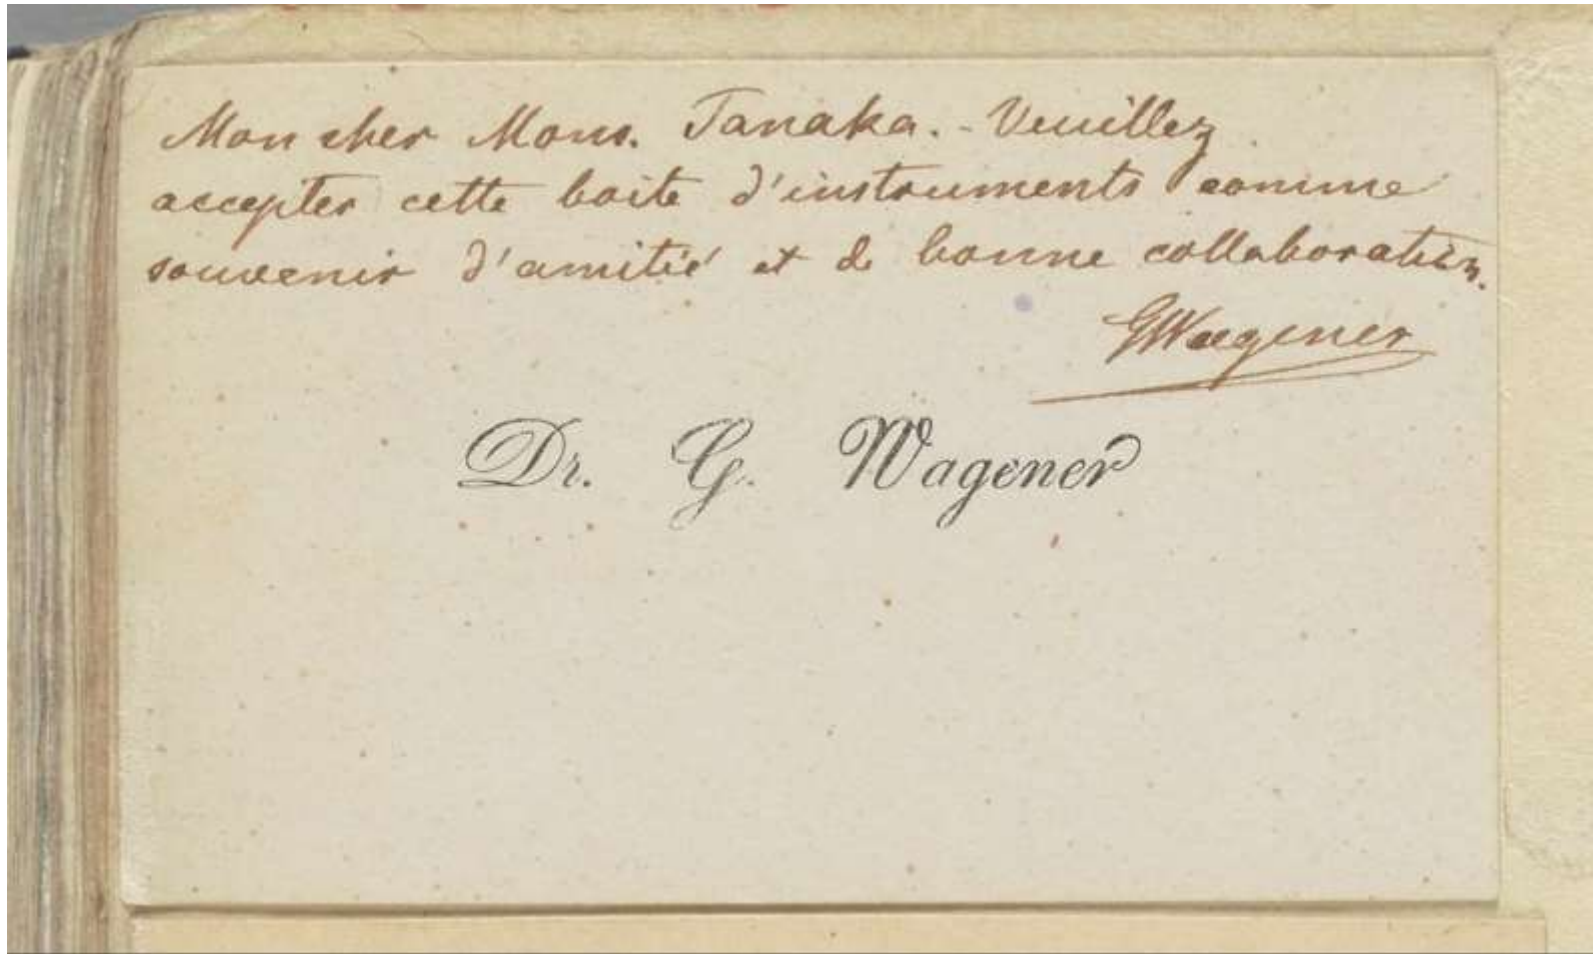 Mon cher Mons. Tanaka. - Veuillez
accepter cette boite d'instruments comme
souvenir d'amitié et de bonne collaboration.
GWagener
Dr. G. Wagener